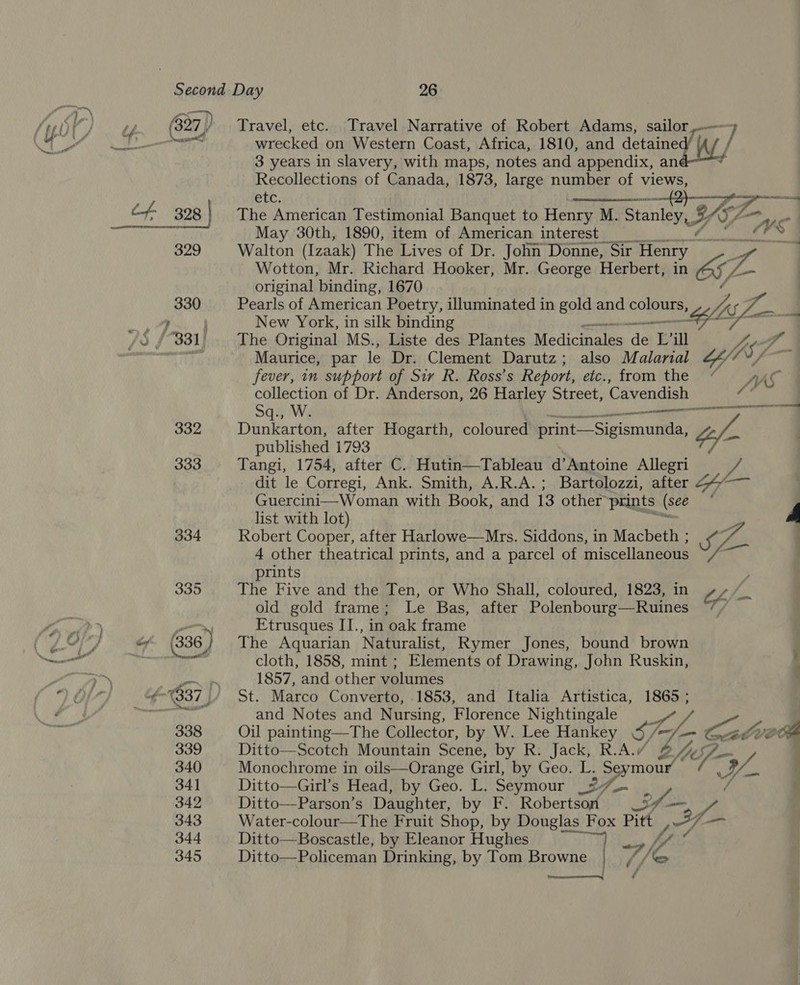 Second Day 26
327 Travel, etc. Travel Narrative of Robert Adams, sailor,
wrecked on Western Coast, Africa, 1810, and detained
3 years in slavery, with maps, notes and appendix, and
Recollections of Canada, 1873, large number of views,
etc. (2)
328 The American Testimonial Banquet to Henry M. Stanley,
May 30th, 1890, item of American interest
329 Walton (Izaak) The Lives of Dr. John Donne, Sir Henry
Wotton, Mr. Richard Hooker, Mr. George Herbert, in
original binding, 1670
330 Pearls of American Poetry, illuminated in gold and colours,
New York, in silk binding
331 The Original MS., Liste des Plantes Medicinales de L'ill
Maurice, par le Dr. Clement Darutz; also Malarial
fever, in support of Sir R. Ross's Report, etc., from the
collection of Dr. Anderson, 26 Harley Street, Cavendish
Sq., W.
332 Dunkarton, after Hogarth, coloured print—Sigismunda,
published 1793
333 Tangi, 1754, after C. Hutin—Tableau d'Antoine Allegri
dit le Corregi, Ank. Smith, A.R.A.; Bartolozzi, after
Guercini—Woman with Book, and 13 other prints (see
list with lot)
334 Robert Cooper, after Harlowe—Mrs. Siddons, in Macbeth;
4 other theatrical prints, and a parcel of miscellaneous
prints
335 The Five and the Ten, or Who Shall, coloured, 1823, in
old gold frame; Le Bas, after Polenbourg—Ruines
Etrusques II., in oak frame
336 The Aquarian Naturalist, Rymer Jones, bound brown
cloth, 1858, mint; Elements of Drawing, John Ruskin,
1857, and other volumes
337 St. Marco Converto, 1853, and Italia Artistica, 1865;
and Notes and Nursing, Florence Nightingale
338 Oil painting—The Collector, by W. Lee Hankey
339 Ditto—Scotch Mountain Scene, by R. Jack, R.A.
340 Monochrome in oils—Orange Girl, by Geo. L. Seymour
341 Ditto—Girl's Head, by Geo. L. Seymour
342 Ditto—Parson's Daughter, by F. Robertson
343 Water-colour—The Fruit Shop, by Douglas Fox Pitt
344 Ditto—Boscastle, by Eleanor Hughes
345 Ditto—Policeman Drinking, by Tom Browne